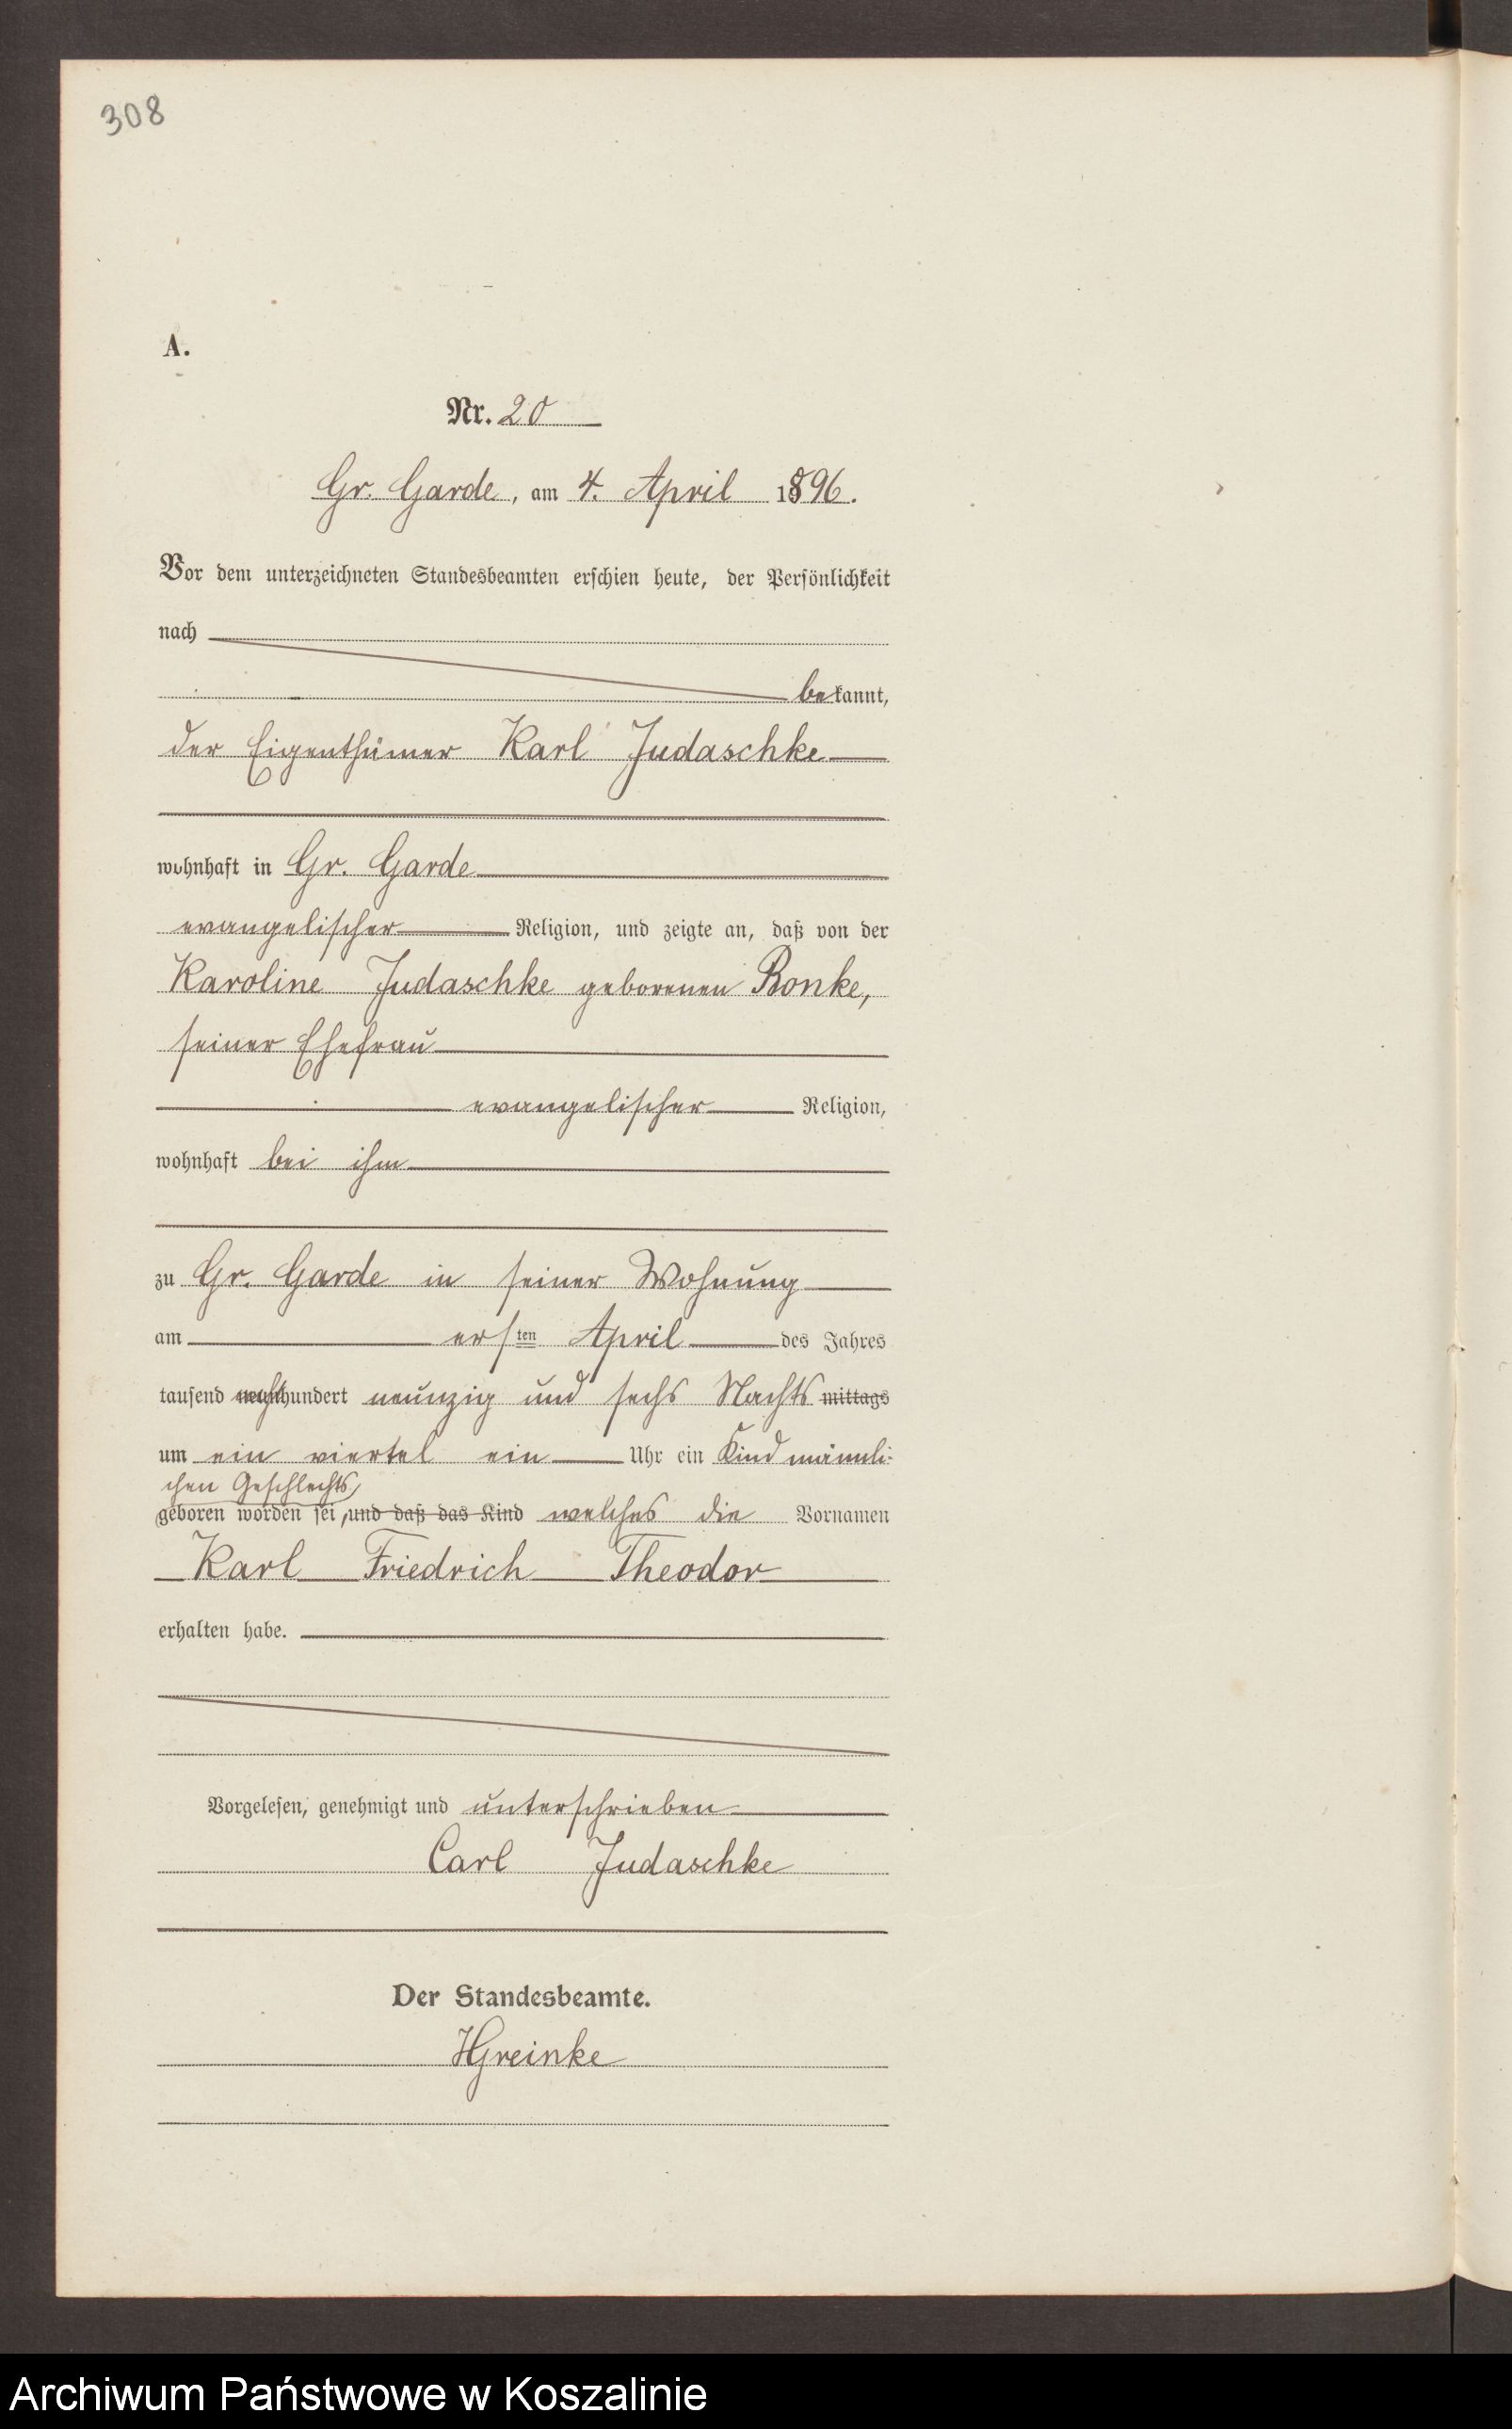 308
A.
Nr. 20
Gr. Garde, am 4. April 1896.
Vor dem unterzeichneten Standesbeamten erschien heute, der Persönlichkeit
nach
bekannt,
der Eigenthümer Karl Judaschke
wohnhaft in Gr. Garde
evangelischer Religion, und zeigte an, daß von der
Karoline Judaschke geborenen Bonke,
seiner Ehefrau
evangelischer Religion,
wohnhaft bei ihm
zu Gr. Garde in seiner Wohnung
am ersten April des Jahres
tausend achthundert neunzig und sechs Nachts mittags
um ein viertel ein Uhr ein Kind männli-
chen Geschlechts
geboren worden sei, und daß das Kind welches die Vornamen
Karl Friedrich Theodor
erhalten habe.
Vorgelesen, genehmigt und unterschrieben
Carl Judaschke
Der Standesbeamte.
HGreinke
Archiwum Państwowe w Koszalinie